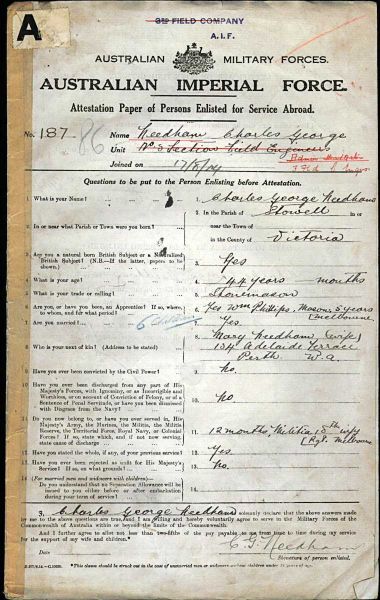 A
3rd FIELD COMPANY
A.I.F.
AUSTRALIAN MILITARY FORCES.
AUSTRALIAN IMPERIAL FORCE.
Attestation Paper of Persons Enlisted for Service Abroad.
No. 187 86 Name Needham Charles George
Unit No 3 Section Field Engineers
Joined on
Questions to be put to the Person Enlisting before Attestation.
1. What is your Name? 1. Charles George Needham
2. In or near what Parish or Town were you born? 2. In the Parish of Stowell in or
near the Town of
in the County of Victoria
3. Are you a natural born British Subject or a Naturalized British Subject? (N.B.—If the latter, papers to be shown). 3. Yes
4. What is your age? 4. 44 years months
5. What is your trade or calling? 5. Stonemason
6. Are you, or have you been, an Apprentice? If so, where, to whom, and for what period? 6. Yes Wm Phillips. Mason. 5 years
Melbourne
7. Are you married? 6 Children 7. Yes
8. Who is your next of kin? (Address to be stated) 8. Mary Needham (wife)
134 Adelaide Terrace
Perth W.A.
9. Have you ever been convicted by the Civil Power? 9. No.
10. Have you ever been discharged from any part of His Majesty's Forces, with Ignominy, or as Incorrigible and Worthless, or on account of Conviction of Felony, or of a Sentence of Penal Servitude, or have you been dismissed with Disgrace from the Navy? 10. No
11. Do you now belong to, or have you ever served in, His Majesty's Army, the Marines, the Militia, the Militia Reserve, the Territorial Force, Royal Navy, or Colonial Forces? If so, state which, and if not now serving, state cause of discharge 11. 12 months, Militia,
Melbourne
12. Have you stated the whole, if any, of your previous service? 12. Yes
13. Have you ever been rejected as unfit for His Majesty's Service? If so, on what grounds? 13. No.
14. (For married men and widowers with children)—
Do you understand that no Separation Allowance will be issued to you either before or after embarkation during your term of service? 14.
3. I, Charles George Needham solemnly declare that the above answers
made by me to the above questions are true, and I am willing and hereby voluntarily agree to serve in the Military Forces of the
Commonwealth of Australia within or beyond the limits of the Commonwealth.
And I further agree to allot not less than two-fifths of the pay payable to me from time to time during my service
for the support of my wife and children.
Date C G Needham
Signature of person enlisted.
*This clause should be struck out in the case of unmarried men or widowers without children under 18 years of age.